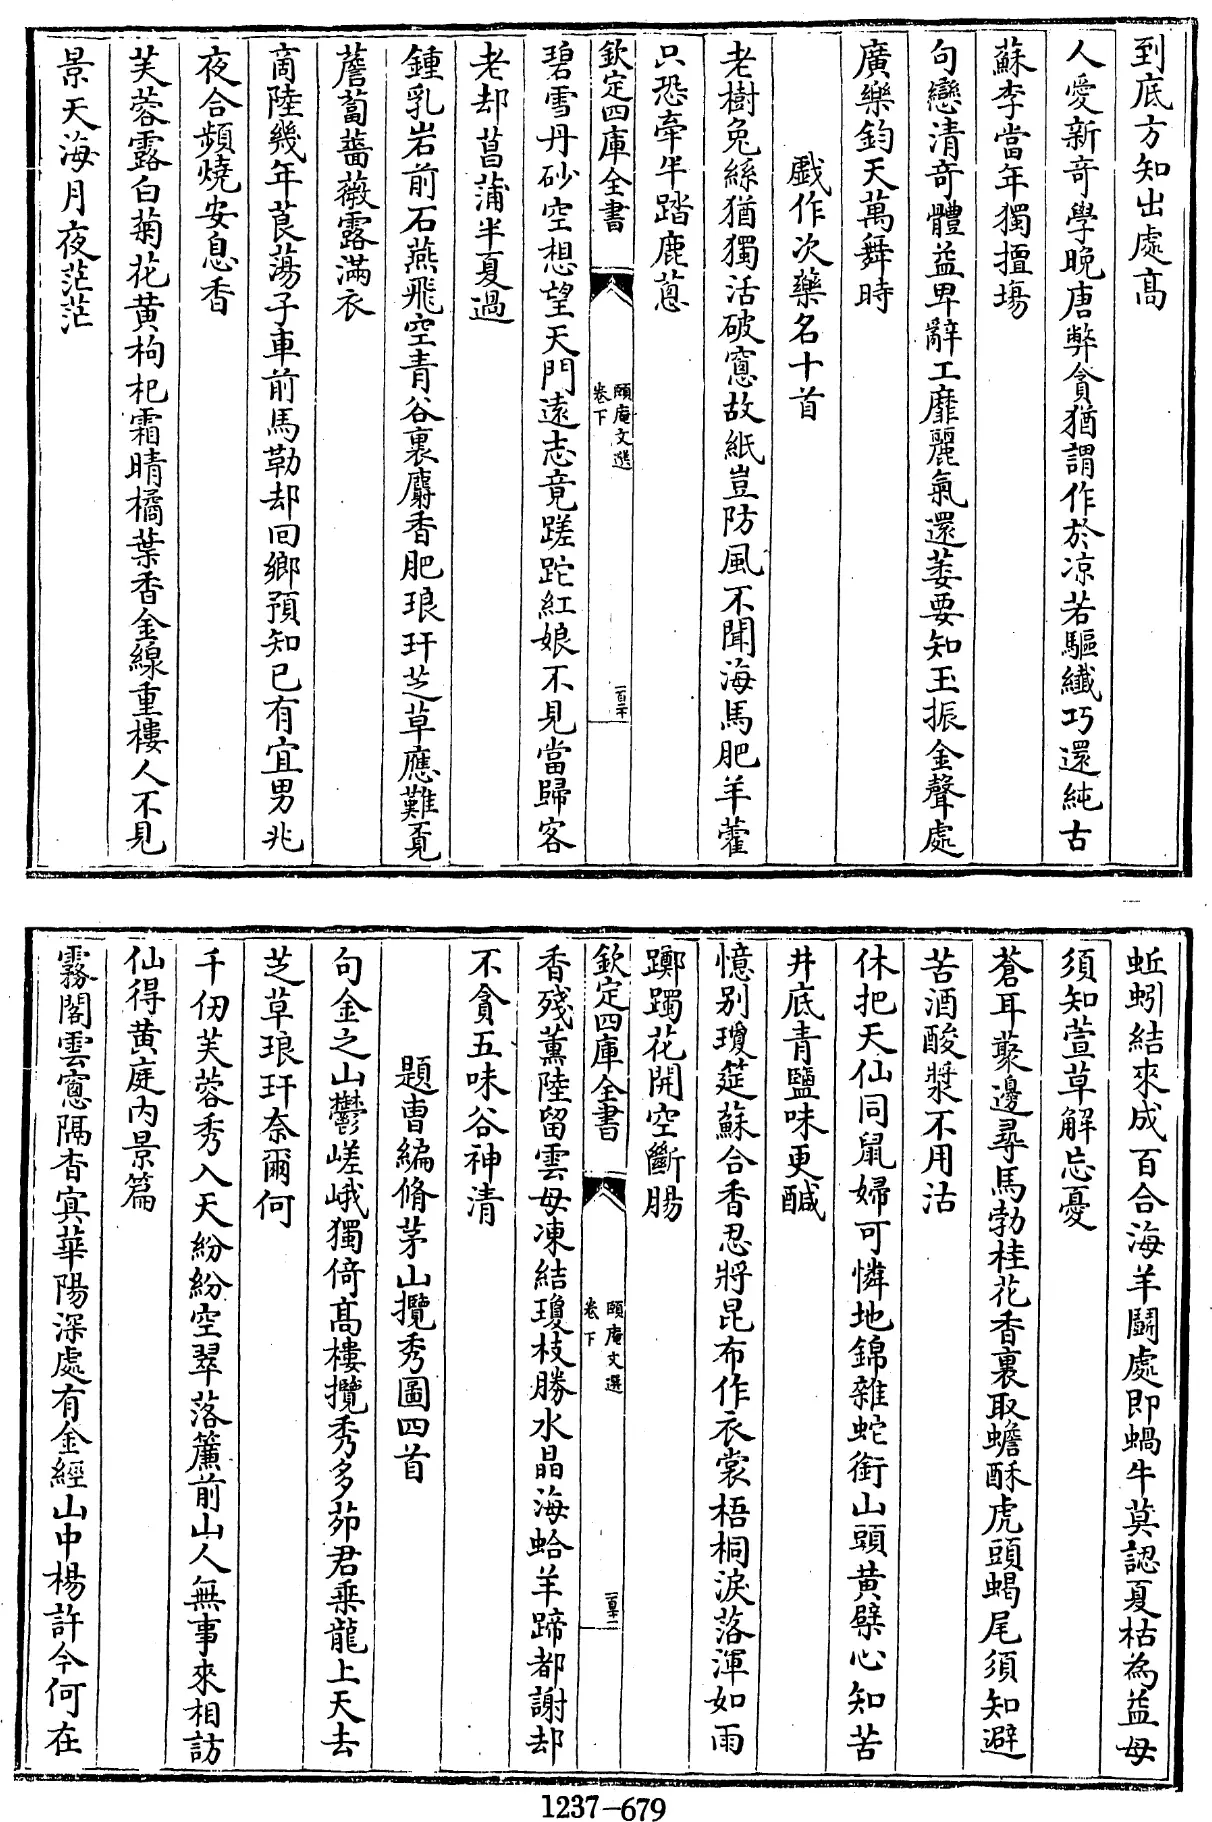 到底方知出處高
人愛新奇學晚唐弊貪猶謂作於凉若驅纎巧還純古
蘇李當年獨擅塲
句戀清奇體益卑辭工靡麗氣還萎要知玉振金聲處
廣樂鈞天萬舞時
戯作次藥名十首
老樹兔絲猶獨活破窻故紙豈防風不聞海馬肥羊藿
只恐牽牛踏鹿䓗
欽定四庫全書
頤庵文選
卷下
一百二十
碧雪丹砂空想望天門遠志竟蹉跎紅娘不見當歸客
老却菖蒲半夏過
鍾乳岩前石燕飛空青谷裏麝香肥琅玕芝草應難覔
薝蔔薔薇露滿衣
商陸幾年莨蕩子車前馬勒却回鄉預知已有宜男兆
夜合頻燒安息香
芙蓉露白菊花黄枸杞霜晴橘葉香金線重樓人不見
景天海月夜茫茫
蚯蚓結來成百合海羊鬬處即蝸牛莫認夏枯為益母
須知萱草解忘憂
蒼耳藂邊尋馬勃桂花香裏取蟾酥虎頭蝎尾須知避
苦酒酸漿不用沽
休把天仙同鼠婦可憐地錦雜蛇銜山頭黄蘗心知苦
井底青鹽味更醎
憶别瓊筵蘇合香忍將昆布作衣裳梧桐淚落渾如雨
躑躅花開空斷腸
欽定四庫全書
頤庵文選
卷下
一百二十一
香殘薰陸留雲母凍結瓊枝勝水晶海蛤羊蹄都謝却
不貪五味谷神清
題曺編脩茅山攬秀圖四首
句金之山鬱嵯峨獨倚髙樓攬秀多茆君乗龍上天去
芝草琅玕奈爾何
千仞芙蓉秀入天紛紛空翠落簾前山人無事來相訪
仙得黄庭内景篇
霧閣雲窻隔杳㝠華陽深處有金經山中楊許今何在
1237-679